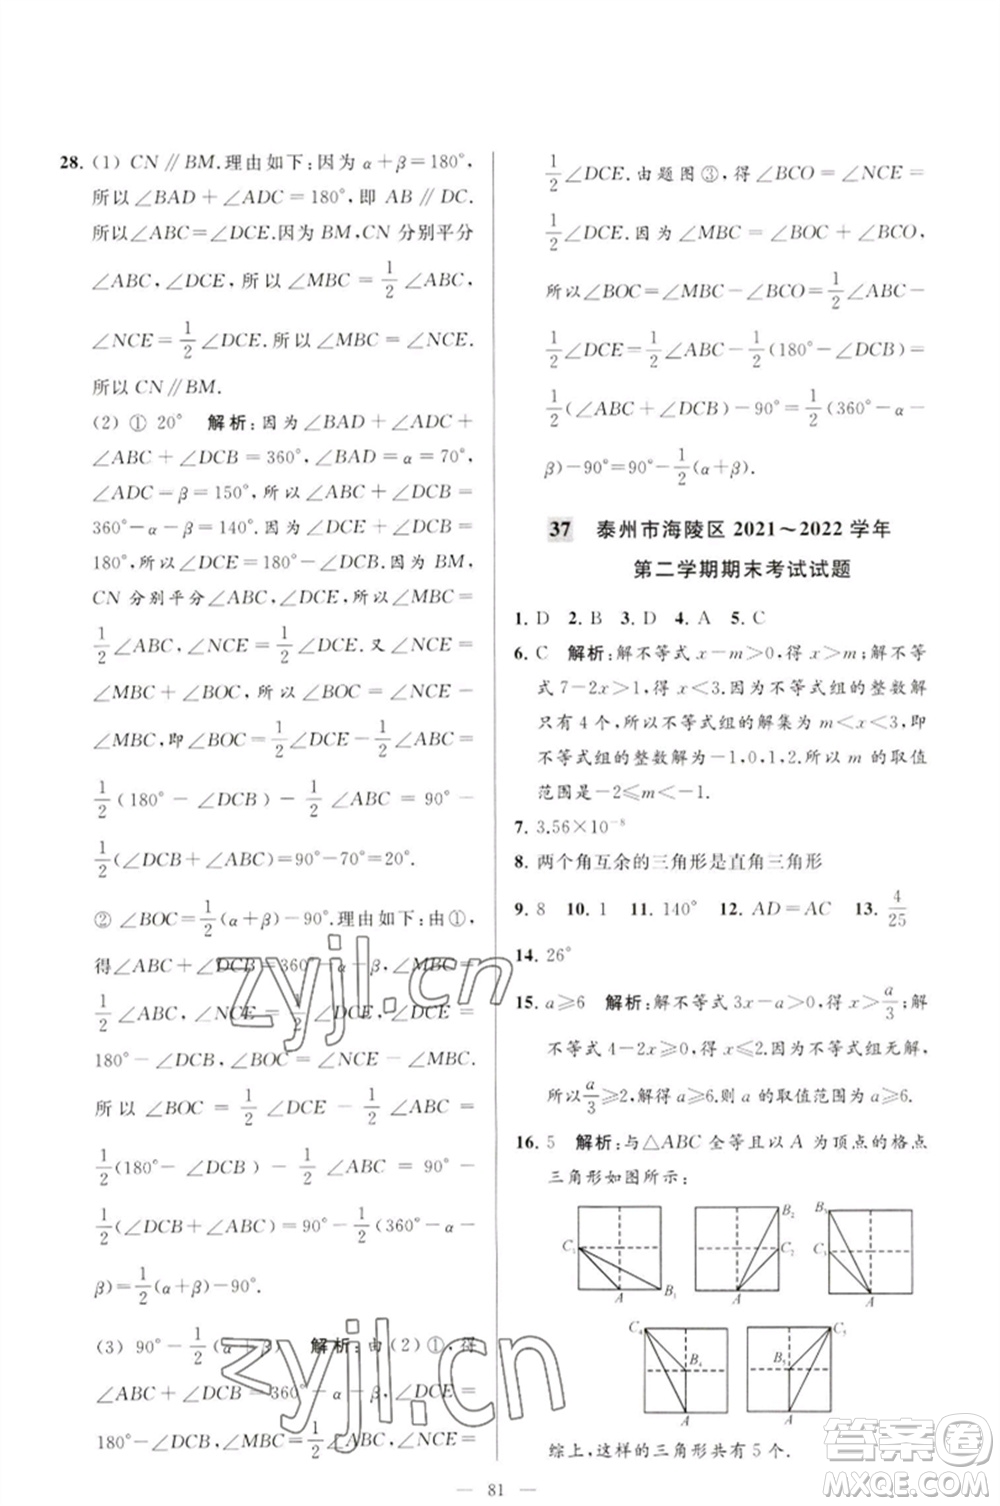 28. (1) CN∥BM.理由如下:因为 α+β=180°,
所以∠BAD+∠ADC=180°,即 AB∥DC.
所以∠ABC=∠DCE.因为 BM,CN 分别平分
∠ABC,∠DCE,所以∠MBC=1/2∠ABC,
∠NCE=1/2∠DCE.所以∠MBC=∠NCE.
所以 CN∥BM.
(2) ① 20° 解析:因为∠BAD+∠ADC+
∠ABC+∠DCB=360°,∠BAD=α=70°,
∠ADC=β=150°,所以∠ABC+∠DCB=
360°-α-β=140°.因为∠DCB+∠DCE=
180°,所以∠DCE=180°-∠DCB.因为 BM,
CN 分别平分∠ABC,∠DCE,所以∠MBC=
1/2∠ABC,∠NCE=1/2∠DCE.又∠NCE=
∠MBC+∠BOC,所以∠BOC=∠NCE-
∠MBC,即∠BOC=1/2∠DCE-1/2∠ABC=
1/2(180°-∠DCB)-1/2∠ABC=90°-
1/2(∠DCB+∠ABC)=90°-70°=20°.
② ∠BOC=1/2(α+β)-90°.理由如下:由①,
得∠ABC+∠DCB=360°-α-β,∠MBC=
1/2∠ABC,∠NCE=1/2∠DCE,∠DCE=
180°-∠DCB,∠BOC=∠NCE-∠MBC.
所以∠BOC=1/2∠DCE-1/2∠ABC=
1/2(180°-∠DCB)-1/2∠ABC=90°-
1/2(∠DCB+∠ABC)=90°-1/2(360°-α-
β)=1/2(α+β)-90°.
(3) 90°-1/2(α+β) 解析:由(2)①,得
∠ABC+∠DCB=360°-α-β,∠DCE=
180°-∠DCB,∠MBC=1/2∠ABC,∠NCE=
1/2∠DCE.由题图③,得∠BCO=∠NCE=
1/2∠DCE.因为∠MBC=∠BOC+∠BCO,
所以∠BOC=∠MBC-∠BCO=1/2∠ABC-
1/2∠DCE=1/2∠ABC-1/2(180°-∠DCB)=
1/2(∠ABC+∠DCB)-90°=1/2(360°-α-
β)-90°=90°-1/2(α+β).
37 泰州市海陵区 2021~2022 学年
第二学期期末考试试题
1. D 2. B 3. D 4. A 5. C
6. C 解析:解不等式 x-m>0,得 x>m;解不等
式 7-2x>1,得 x<3.因为不等式组的整数解
只有 4 个,所以不等式组的解集为 m<x<3,即
不等式组的整数解为-1,0,1,2.所以 m 的取值
范围是-2≤m<-1.
7. 3.56×10⁻⁸
8. 两个角互余的三角形是直角三角形
9. 8 10. 1 11. 140° 12. AD=AC 13. 4/25
14. 26°
15. a≥6 解析:解不等式 3x-a>0,得 x>a/3;解
不等式 4-2x≥0,得 x≤2.因为不等式组无解,
所以 a/3≥2,解得 a≥6.则 a 的取值范围是 a≥6.
16. 5 解析:与△ABC 全等且以 A 为顶点的格点
三角形如图所示:
C₁ A B₁
B₂ C₂ A
B₃ C₃ A
C₄ B₄ A
C₅ B₅ A
综上,这样的三角形共有 5 个.
81
zyjl.cn
zyjl.cn
答案圈
MXQE.COM